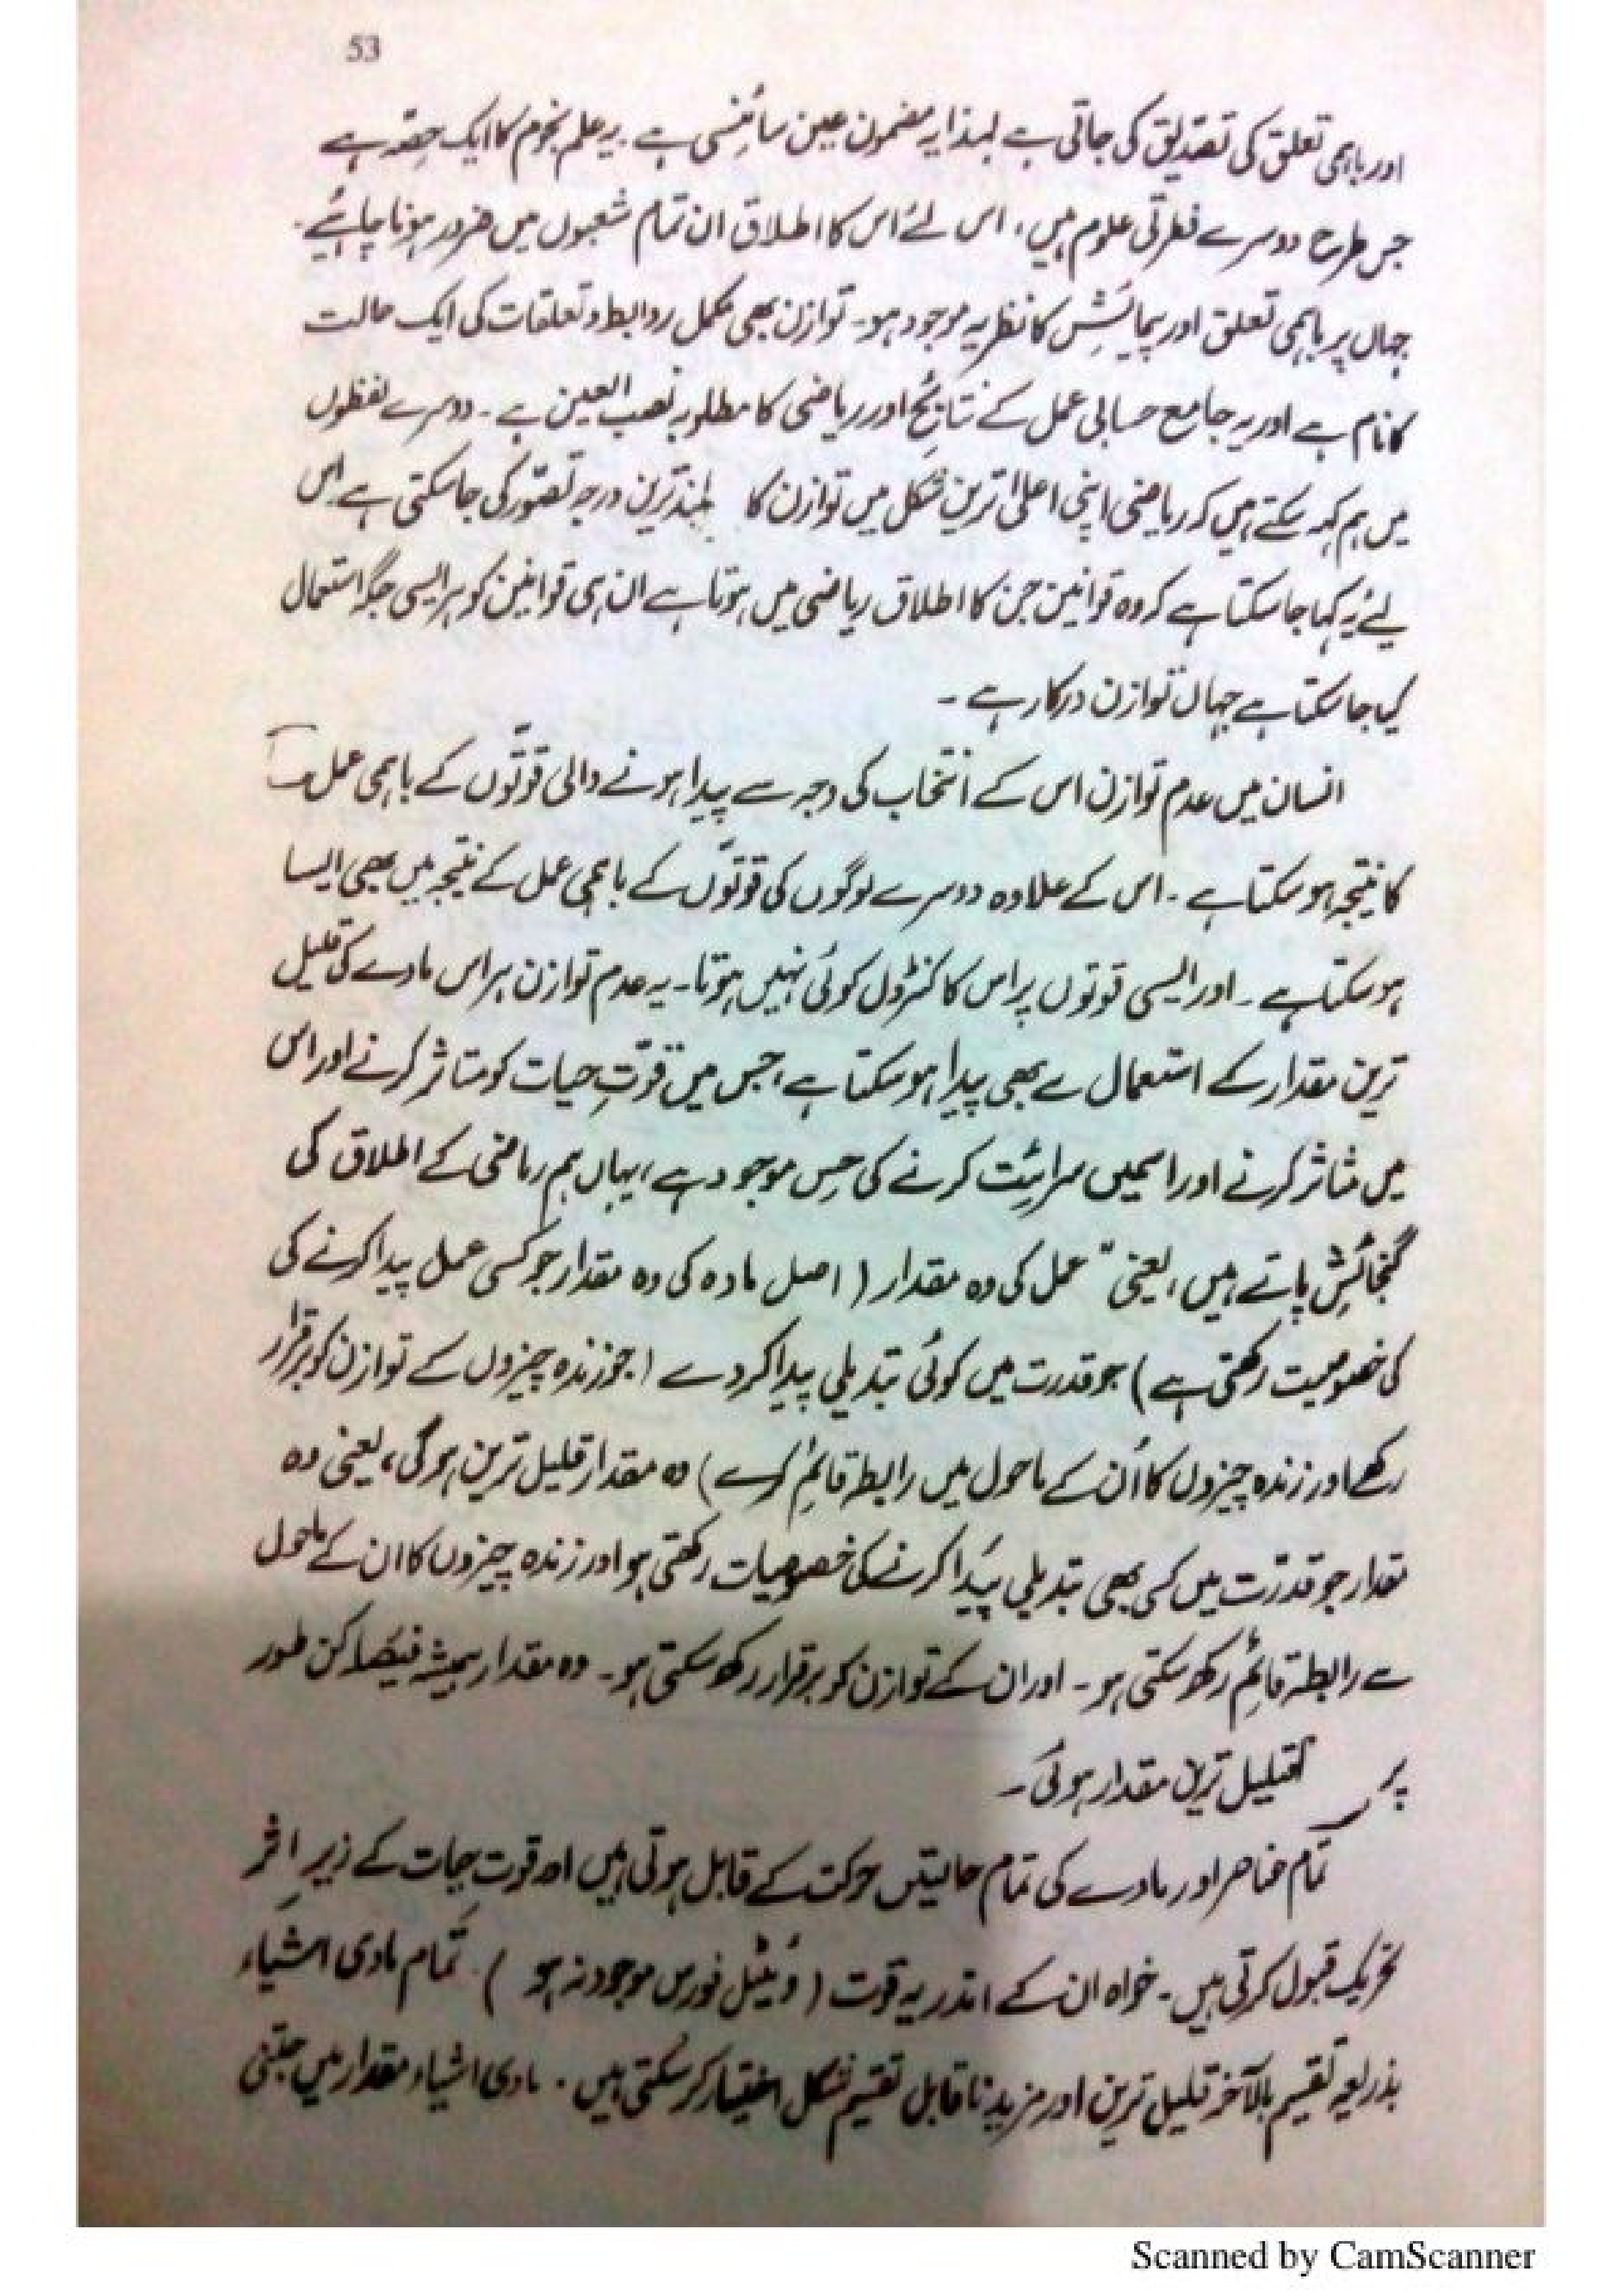 53
اور باہمی تعلق کی تصدیق کی جاتی ہے لہذا یہ مضمون عین سائنسی ہے ۔ یہ علم نجوم کا ایک حصّہ ہے
جس طرح دوسرے فطرتی علوم ہیں ، اس لئے اس کا اطلاق ان تمام شعبوں میں ضرور ہونا چاہئے ۔
جہاں پر باہمی تعلق اور پیمائش کا نظریہ موجود ہو ۔ توازن بھی مکمل روابط و تعلقات کی ایک حالت
کا نام ہے اور یہ جامع حسابی عمل کے نتائج اور ریاضی کا مطلوبہ نصب العین ہے ۔ دوسرے لفظوں
میں ہم کہہ سکتے ہیں کہ ریاضی اپنی اعلیٰ ترین شکل میں توازن کا بلند ترین درجہ تصوّر کی جاسکتی ہے اس
لئے یہ کہا جاسکتا ہے کہ وہ قوانین جن کا اطلاق ریاضی میں ہوتا ہے ان ہی قوانین کو ہر ایسی جگہ استعمال
کیا جاسکتا ہے جہاں توازن درکار ہے ۔
انسان میں عدم توازن اس کے انتخاب کی وجہ سے پیدا ہونے والی قوّتوں کے باہمی عمل
کا نتیجہ ہو سکتا ہے ۔ اس کے علاوہ دوسرے لوگوں کی قوتوں کے باہمی عمل کے نتیجہ میں بھی ایسا
ہو سکتا ہے ۔ اور ایسی قوتوں پر اس کا کنٹرول کوئی نہیں ہوتا ۔ یہ عدم توازن ہر اس مادے کی قلیل
ترین مقدار کے استعمال سے بھی پیدا ہو سکتا ہے ، جس میں قوّتِ حیات کو متاثر کرنے اور اس
میں متاثر کرنے اور اسمیں سرائت کرنے کی حِس موجود ہے ، یہاں ہم ریاضی کے اطلاق کی
گنجائش پاتے ہیں ، یعنی " عمل کی وہ مقدار ( اصل مادہ کی وہ مقدار جو کسی عمل پیدا کرنے کی
کی خصوصیت رکھتی ہے ) جو قدرت میں کوئی تبدیلی پیدا کر دے ( جو زندہ چیزوں کے توازن کو برقرار
رکھے اور زندہ چیزوں کا اُن کے ماحول میں رابطہ قائم کرے ) وہ مقدار قلیل ترین ہوگی ، یعنی وہ
مقدار جو قدرت میں کسی بھی تبدیلی پیدا کرنے کی خصوصیات رکھتی ہو اور زندہ چیزوں کا ان کے ماحول
سے رابطہ قائم رکھ سکتی ہو ۔ اور ان کے توازن کو برقرار رکھ سکتی ہو ۔ وہ مقدار ہمیشہ فیصلہ کن طور
پر قلیل ترین مقدار ہوگی ۔
تمام عناصر اور مادے کی تمام حالتیں حرکت کے قابل ہوتی ہیں اور قوت حیات کے زیرِ اثر
تحریک قبول کرتی ہیں ۔ خواہ ان کے اندر یہ قوت ( وئیٹل فورس موجود نہ ہو ) ۔ تمام مادی اشیاء
بذریعہ تقسیم بالآخر قلیل ترین اور مزید ناقابل تقسیم شکل اختیار کر سکتی ہیں ۔ مادی اشیاء مقدار میں جتنی
Scanned by CamScanner